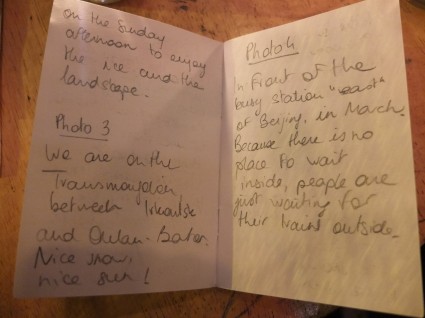 on the Sunday
afternoon to enjoy
the ice and the
landscape.
Photo 3
We are on the
between Irkoutsk
and Oulan-Bator.
Nice snow,
nice sun!
Photo 4
In Front of the
busy station "east"
of Beijing, in March.
Because there is no
place to wait
inside, people are
just waiting for
their train outside.